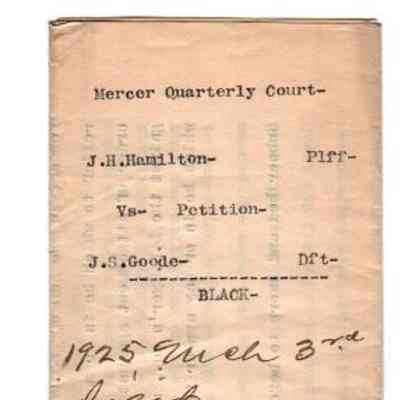 Mercer Quarterly Court-
J.H.Hamilton- Plff-
Vs- Petition-
J.S.Goode- Dft-
BLACK-
1925 Mch 3rd